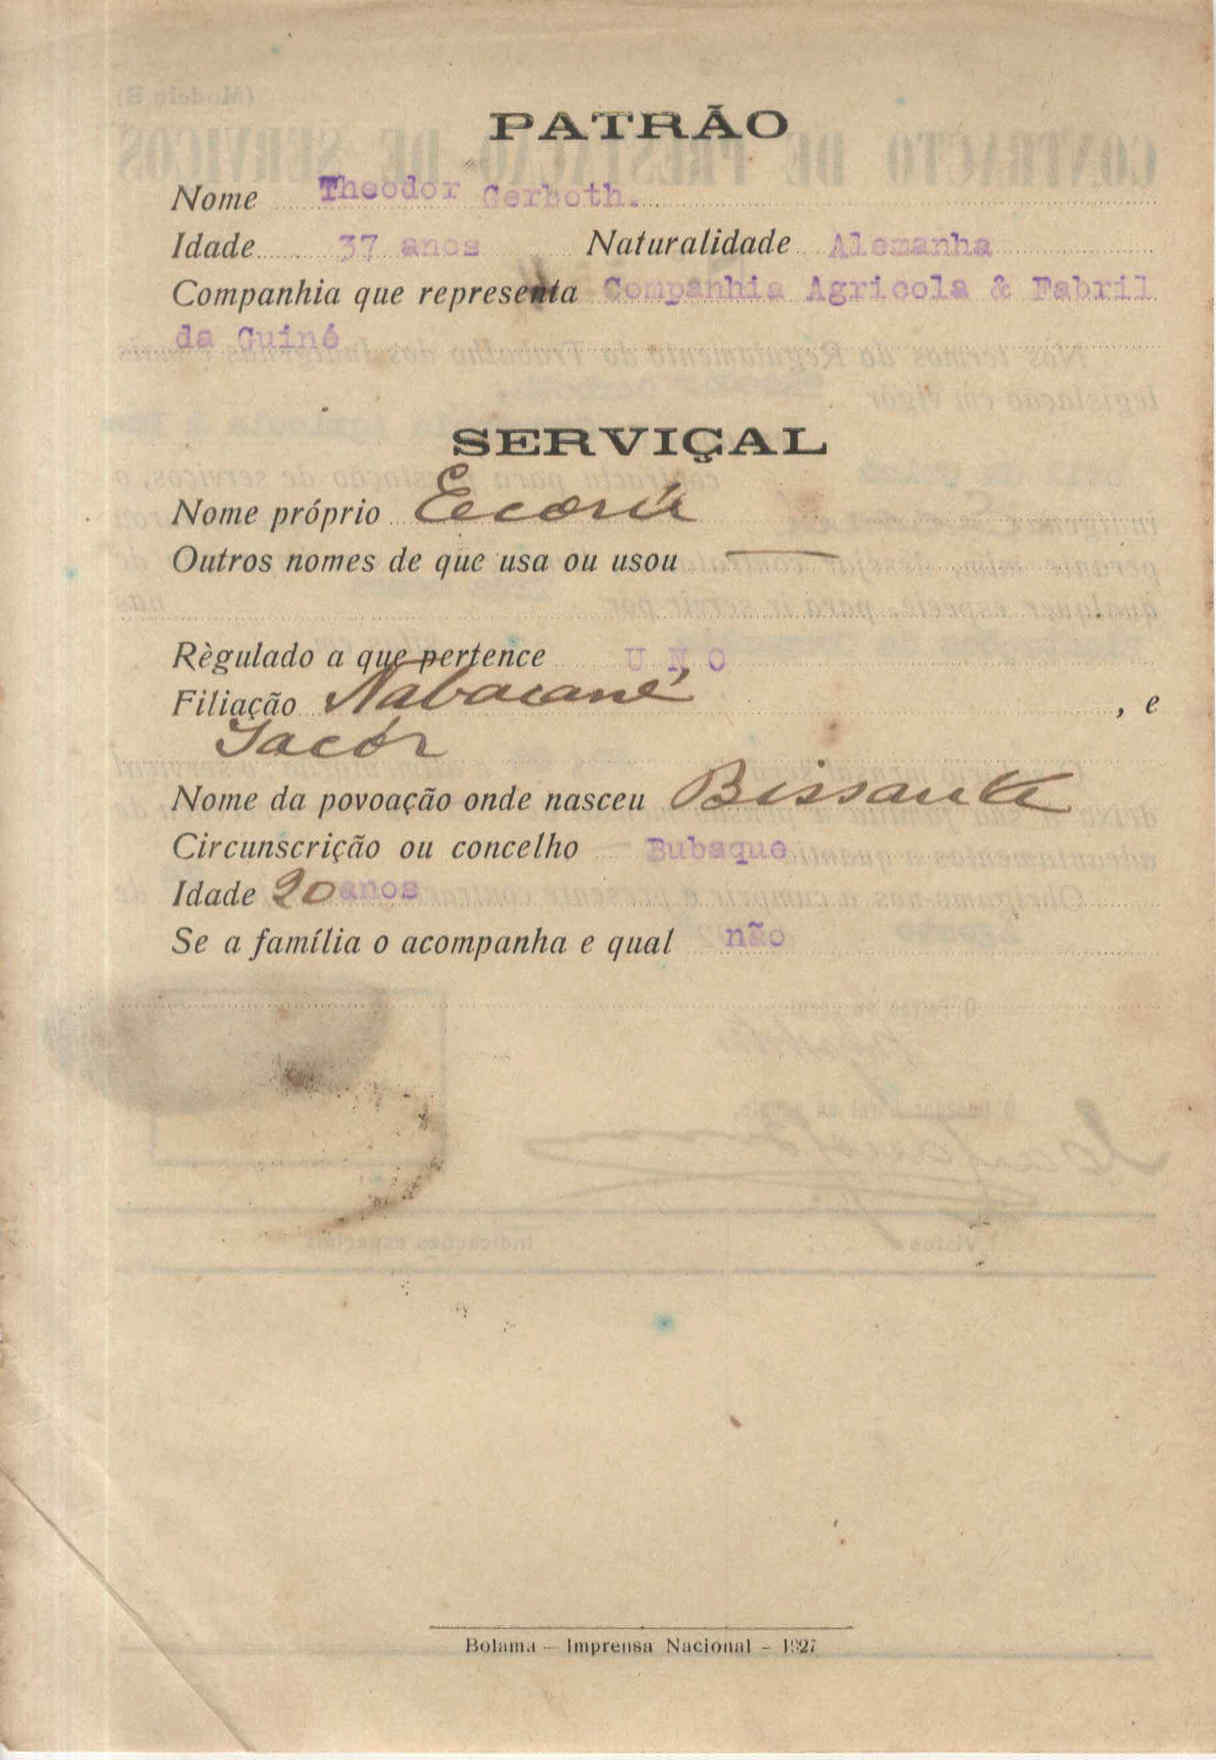 PATRÃO
Nome Theodor Gerboth.
Idade 37 anos Naturalidade Alemanha
Companhia que representa Companhia Agricola & Fabril
da Guiné
SERVIÇAL
Nome próprio
Outros nomes de que usa ou usou —
Règulado a que pertence UNO
Filiação Nabacané, e
Jacór
Nome da povoação onde nasceu
Circunscrição ou concelho Bubaque
Idade 20 anos
Se a família o acompanha e qual não
Bolama — Imprensa Nacional — 1927